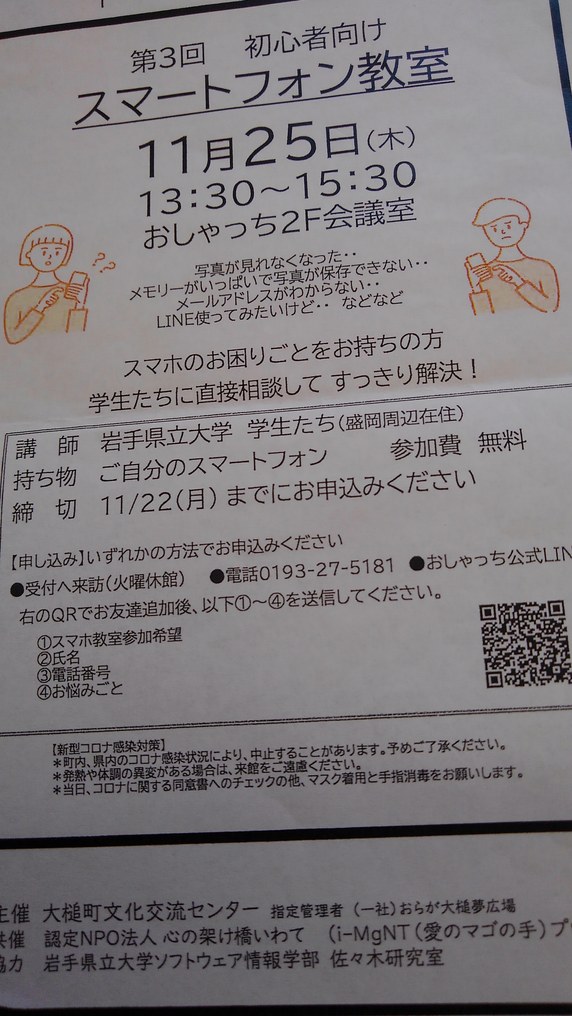 第3回 初心者向け
スマートフォン教室
11月25日(木)
13:30～15:30
おしゃっち2F会議室
??
写真が見れなくなった・・
メモリーがいっぱいで写真が保存できない・・
メールアドレスがわからない・・
LINE使ってみたいけど・・ などなど
スマホのお困りごとをお持ちの方
学生たちに直接相談して すっきり解決！
講師 岩手県立大学 学生たち(盛岡周辺在住)
持ち物 ご自分のスマートフォン 参加費 無料
締切 11/22(月)までにお申込みください
【申し込み】いずれかの方法でお申込みください
●受付へ来訪(火曜休館) ●電話0193-27-5181 ●おしゃっち公式LIN
右のQRでお友達追加後、以下①～④を送信してください。
①スマホ教室参加希望
②氏名
③電話番号
④お悩みごと
【新型コロナ感染対策】
＊町内、県内のコロナ感染状況により、中止することがあります。予めご了承ください。
＊発熱や体調の異変がある場合は、来館をご遠慮ください。
＊当日、コロナに関する同意書へのチェックの他、マスク着用と手指消毒をお願いします。
主催 大槌町文化交流センター 指定管理者 (一社)おらが大槌夢広場
共催 認定NPO法人 心の架け橋いわて (i-MgNT(愛のマゴの手)プ
協力 岩手県立大学ソフトウェア情報学部 佐々木研究室